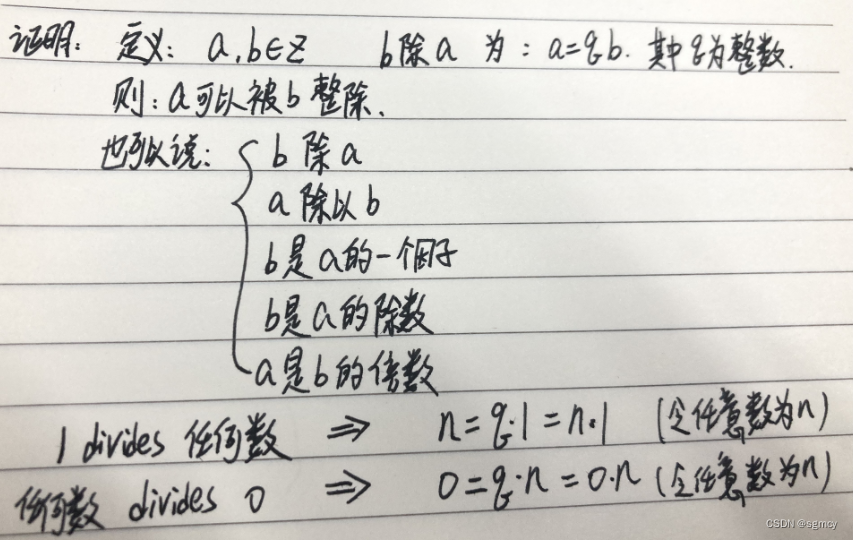 证明: 定义: a,b∈Z b除a 为: a=qb. 其中q为整数.
则: a可以被b整除.
也可以说: { b除a
a除以b
b是a的一个因子
b是a的除数
a是b的倍数
1 divides 任何数 ⇒ n=q·1=n·1 (令任意数为n)
任何数 divides 0 ⇒ 0=q·n=0·n (令任意数为n)
CSDN @sgmcy